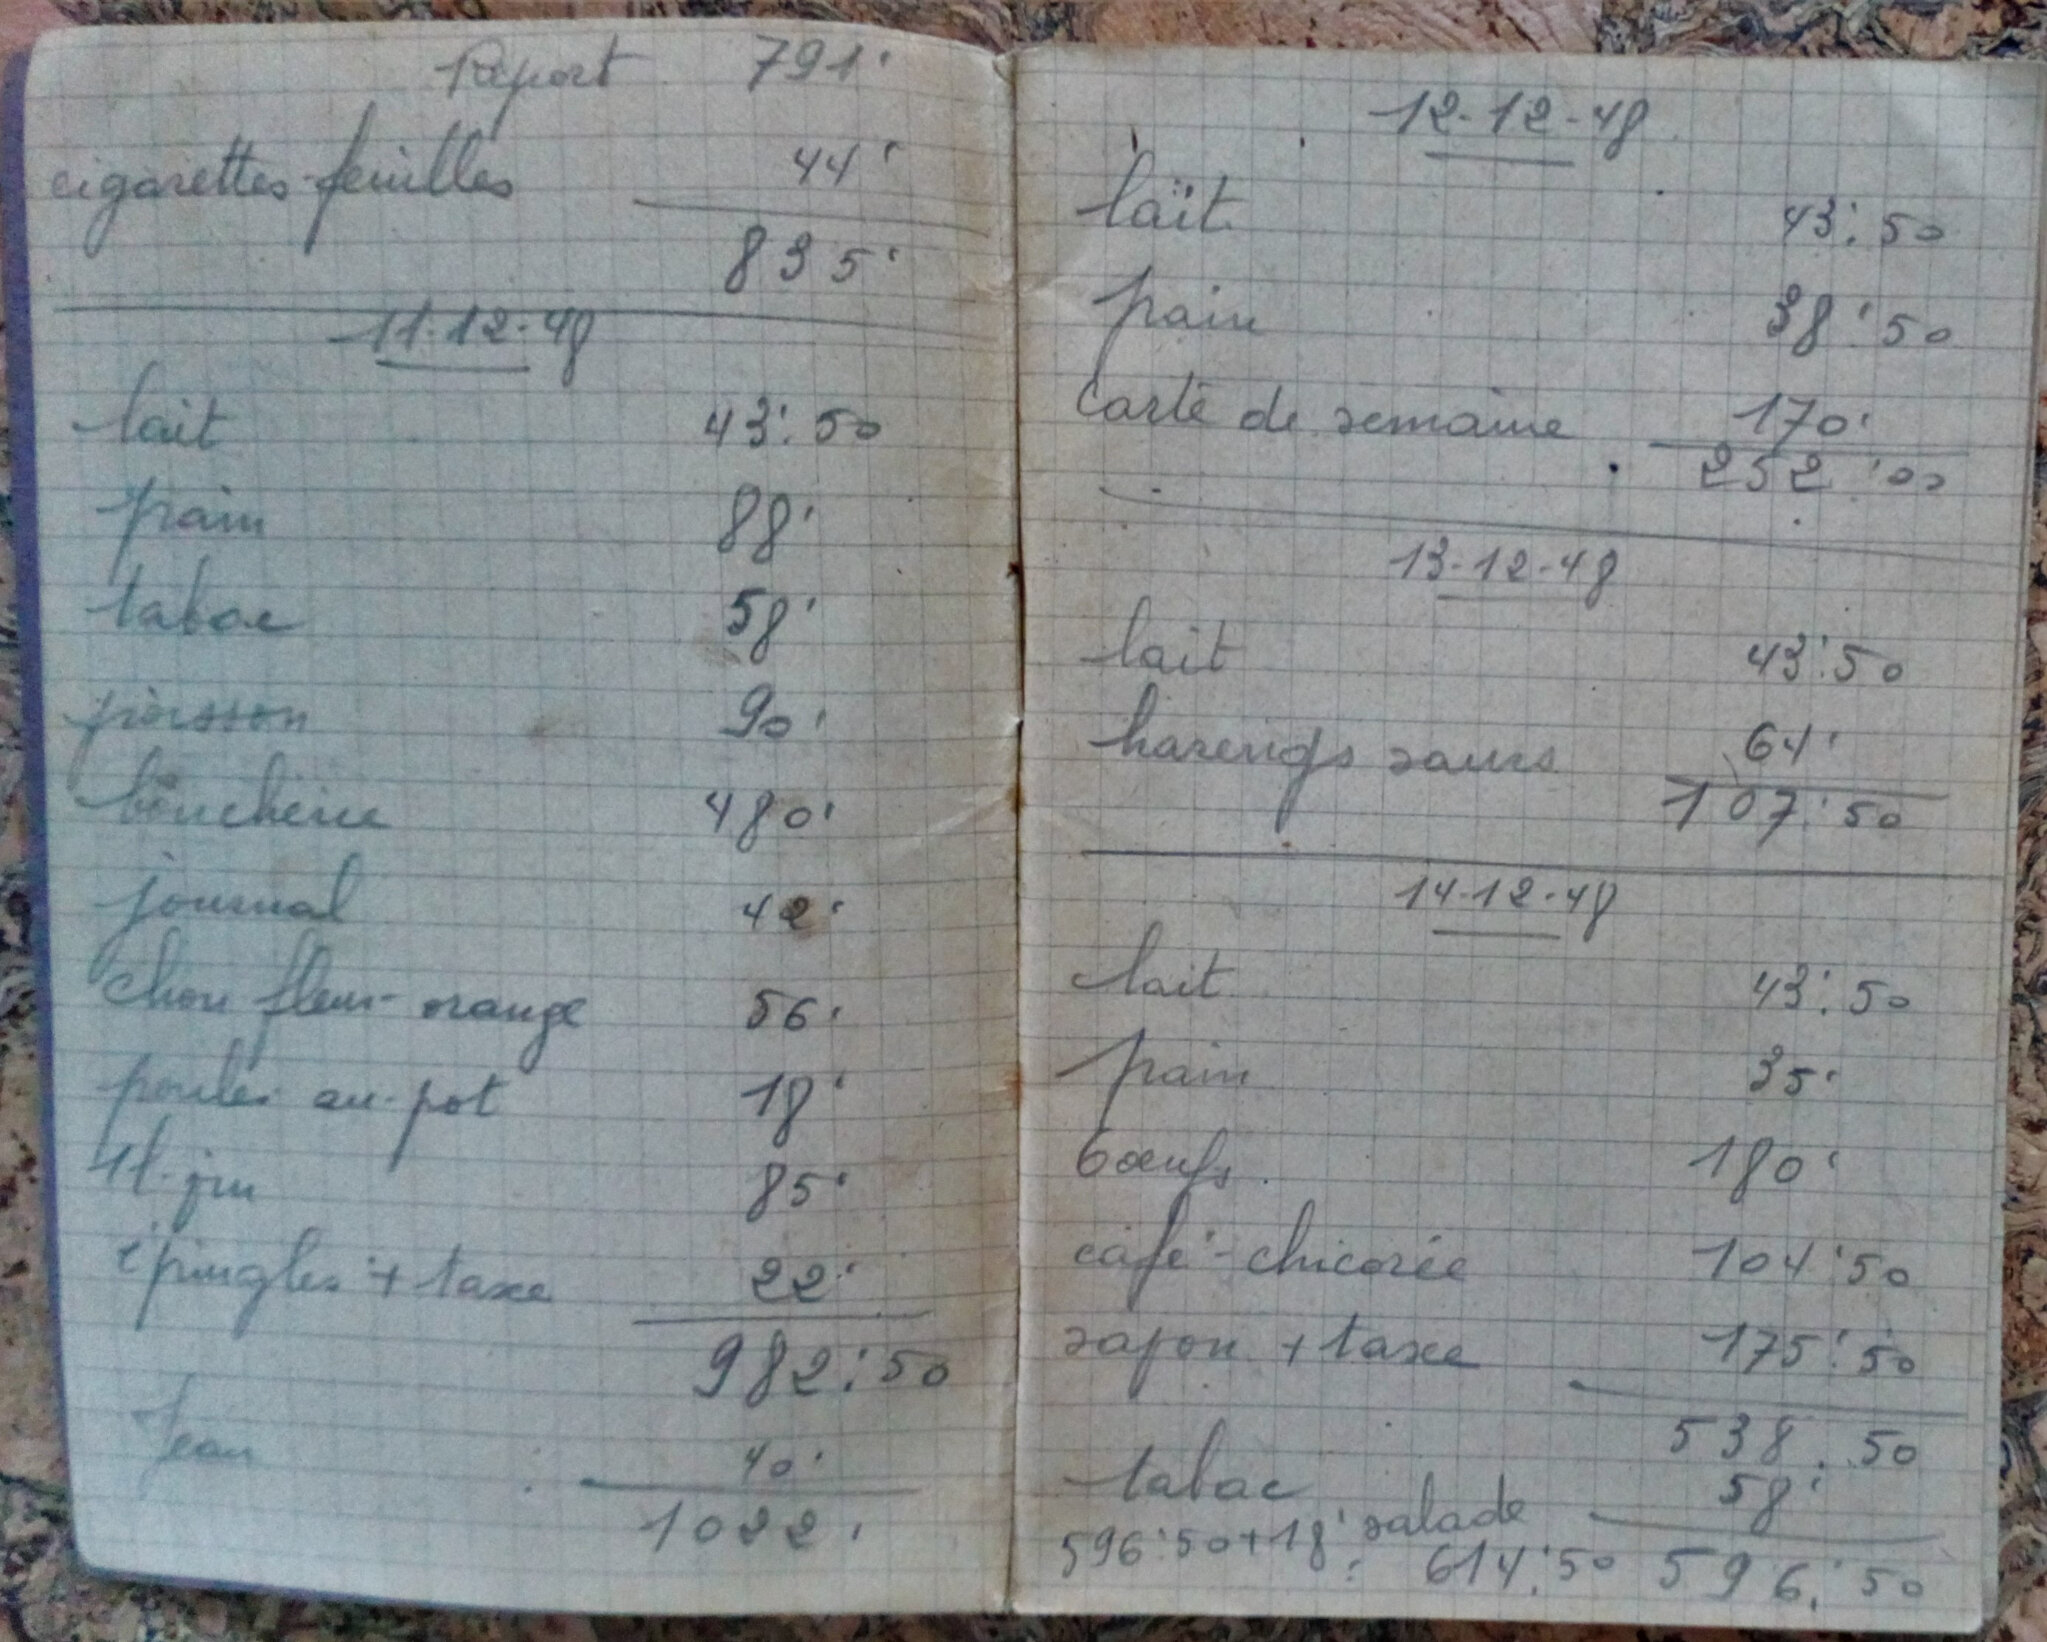 Report 791'
cigarettes-feuilles 44'
835'
11-12-48
lait 43'.50
pain 88'
tabac 58'
poisson 90'
boucherie 480'
journal 42'
chou fleur-orange 56'
poules au pot 18'
1l. jus 85'
épingles + taxe 22'
982'.50
Jean 40'
1022'
12-12-48
lait 43'.50
pain 38'.50
carte de semaine 170'
252'.00
13-12-48
lait 43'.50
harengs saurs 64'
107'.50
14-12-48
lait 43'.50
pain 35'
6 œufs 180'
café-chicorée 104'50
savon + taxe 175'.50
538.50
tabac 58'
596'50+18' salade
: 614'.50 596'.50